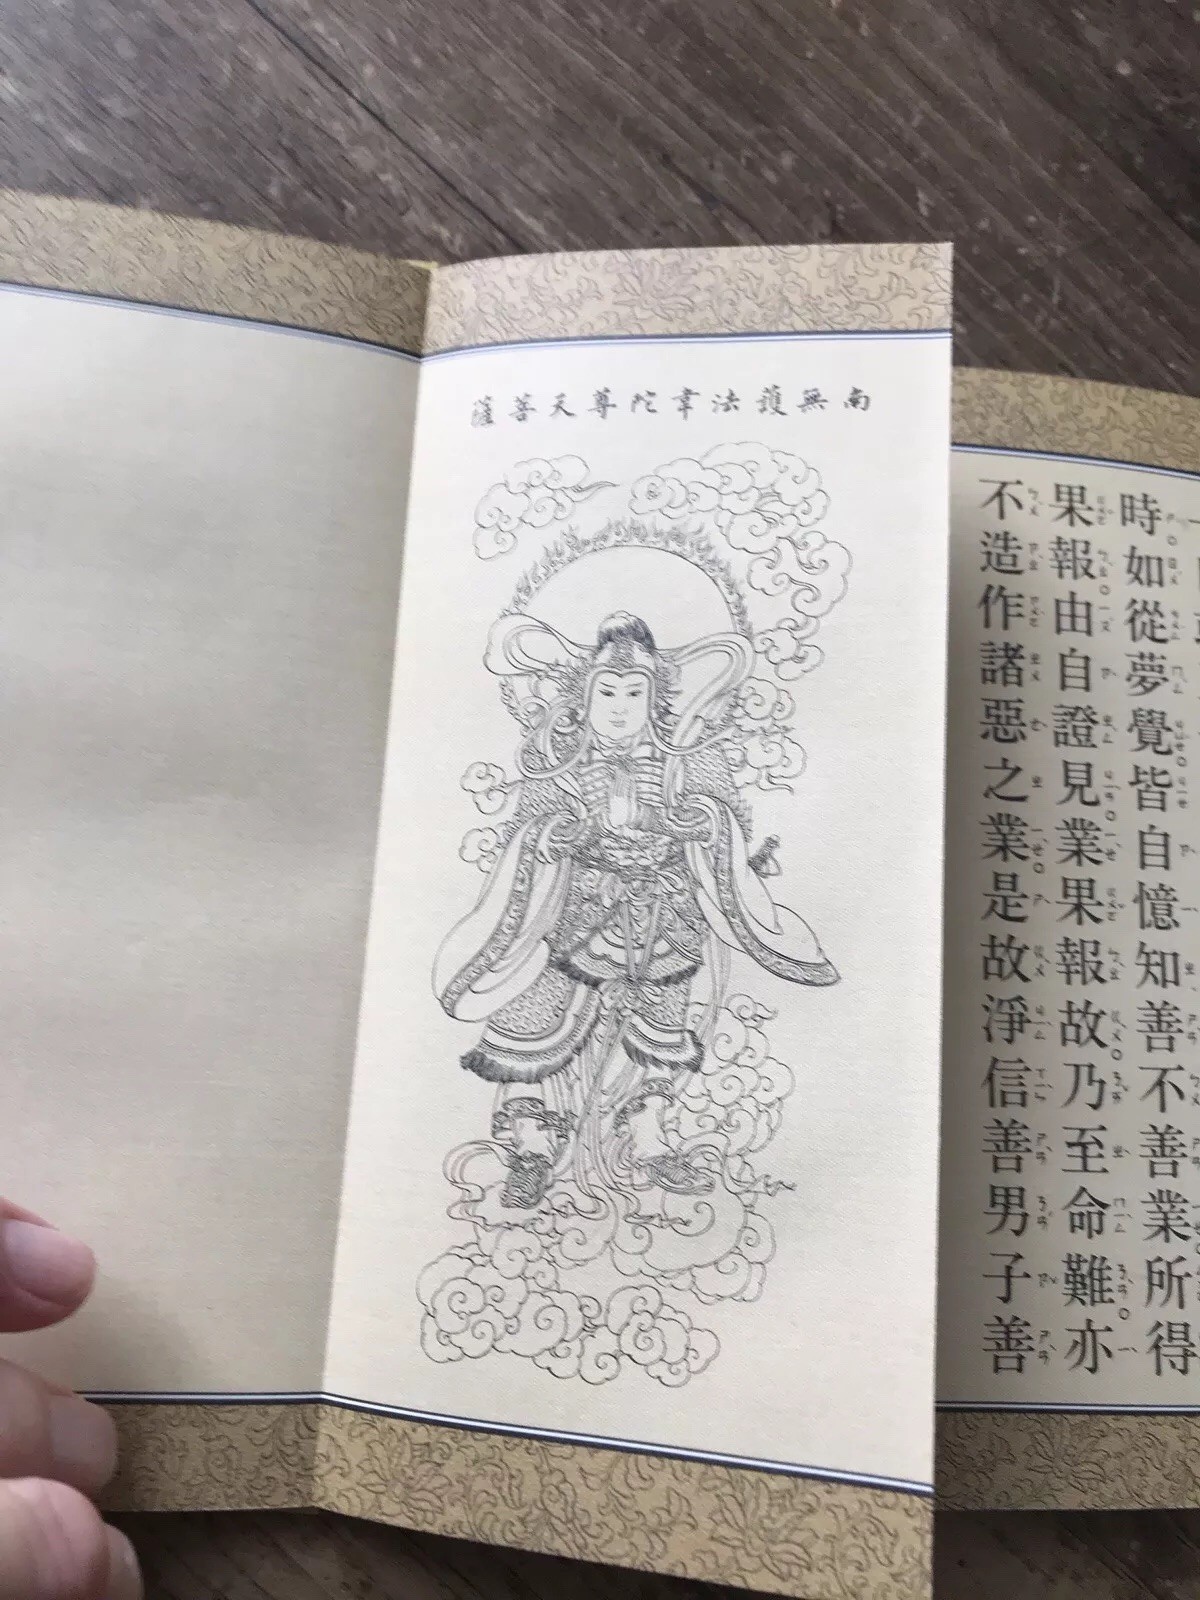 時。如從夢覺。皆自憶知善不善業。所得
果報。由自證見。業果報故。乃至命難。亦
不造作諸惡之業。是故淨信善男子善
南無護法韋陀尊天菩薩